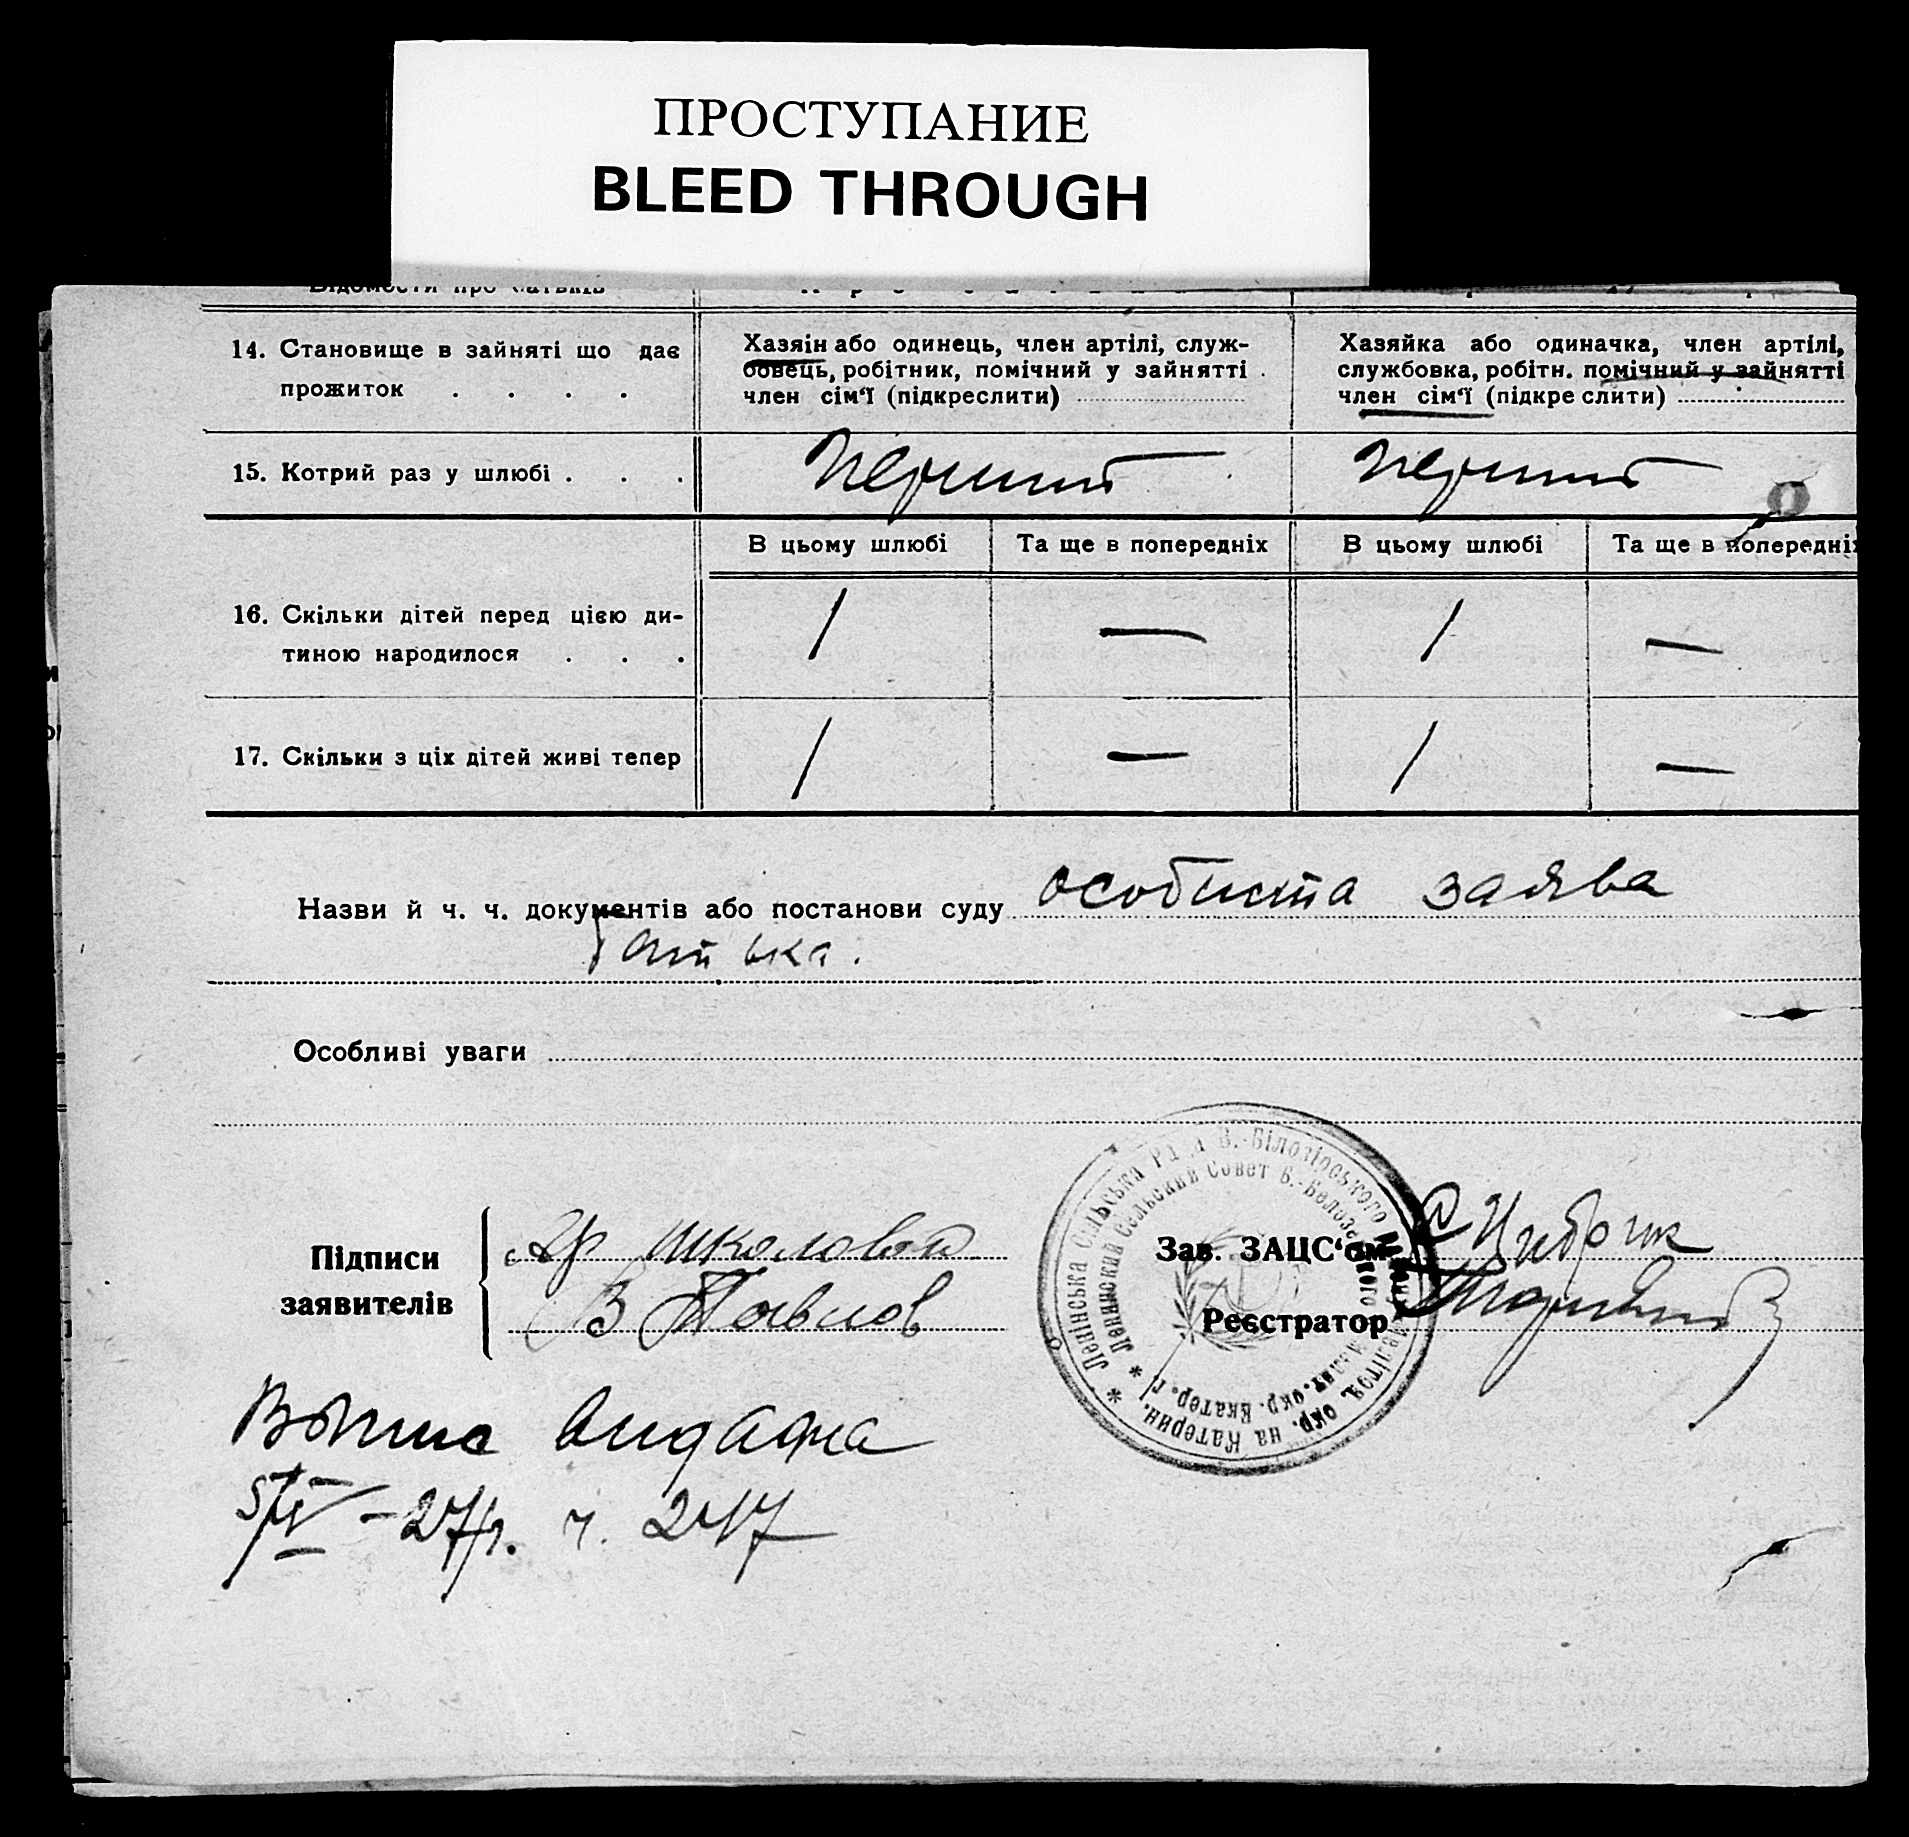 ПРОСТУПАНИЕ
BLEED THROUGH
Відомости про батьків
14. Становище в зайняті що дає
прожиток . . . .
Хазяін або одинець, член артілі, служ-
бовець, робітник, помічний у зайнятті
член сім'ї (підкреслити)
Хазяйка або одиначка, член артілі,
службовка, робітн. помічний у зайнятті
член сім'ї (підкреслити)
15. Котрий раз у шлюбі . . .
перший
перший
В цьому шлюбі
Та ще в попередніх
В цьому шлюбі
Та ще в попередніх
16. Скільки дітей перед цією ди-
тиною народилося . . .
1 — 1 —
17. Скільки з ціх дітей живі тепер
1 — 1 —
Назви й ч. ч. документів або постанови суду особиста заява
батька.
Особливі уваги
Підписи
заявителів
Ар Школовой
В Павлов
Зав. ЗАЦС'ом
Реєстратор
* Ленінська Сільська Рада В.-Білозірського
окр. на Катерин.
* Ленинский Сельский Совет Б.-Белозерского
окр. Екатер. г.
Выпис видана
5/IV – 27 р. ч. 247